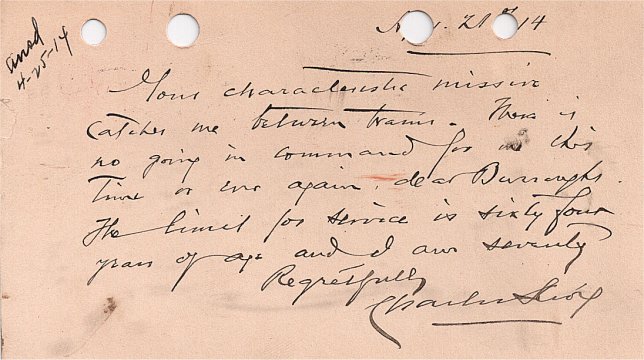 ansd
4-25-14
21st 14
Your characteristic missive
catches me between trains. There is
no going in command for me this
time or ever again, dear Burroughs.
The limit for service is sixty four
years of age and I am seventy
Regretfully
Charles King